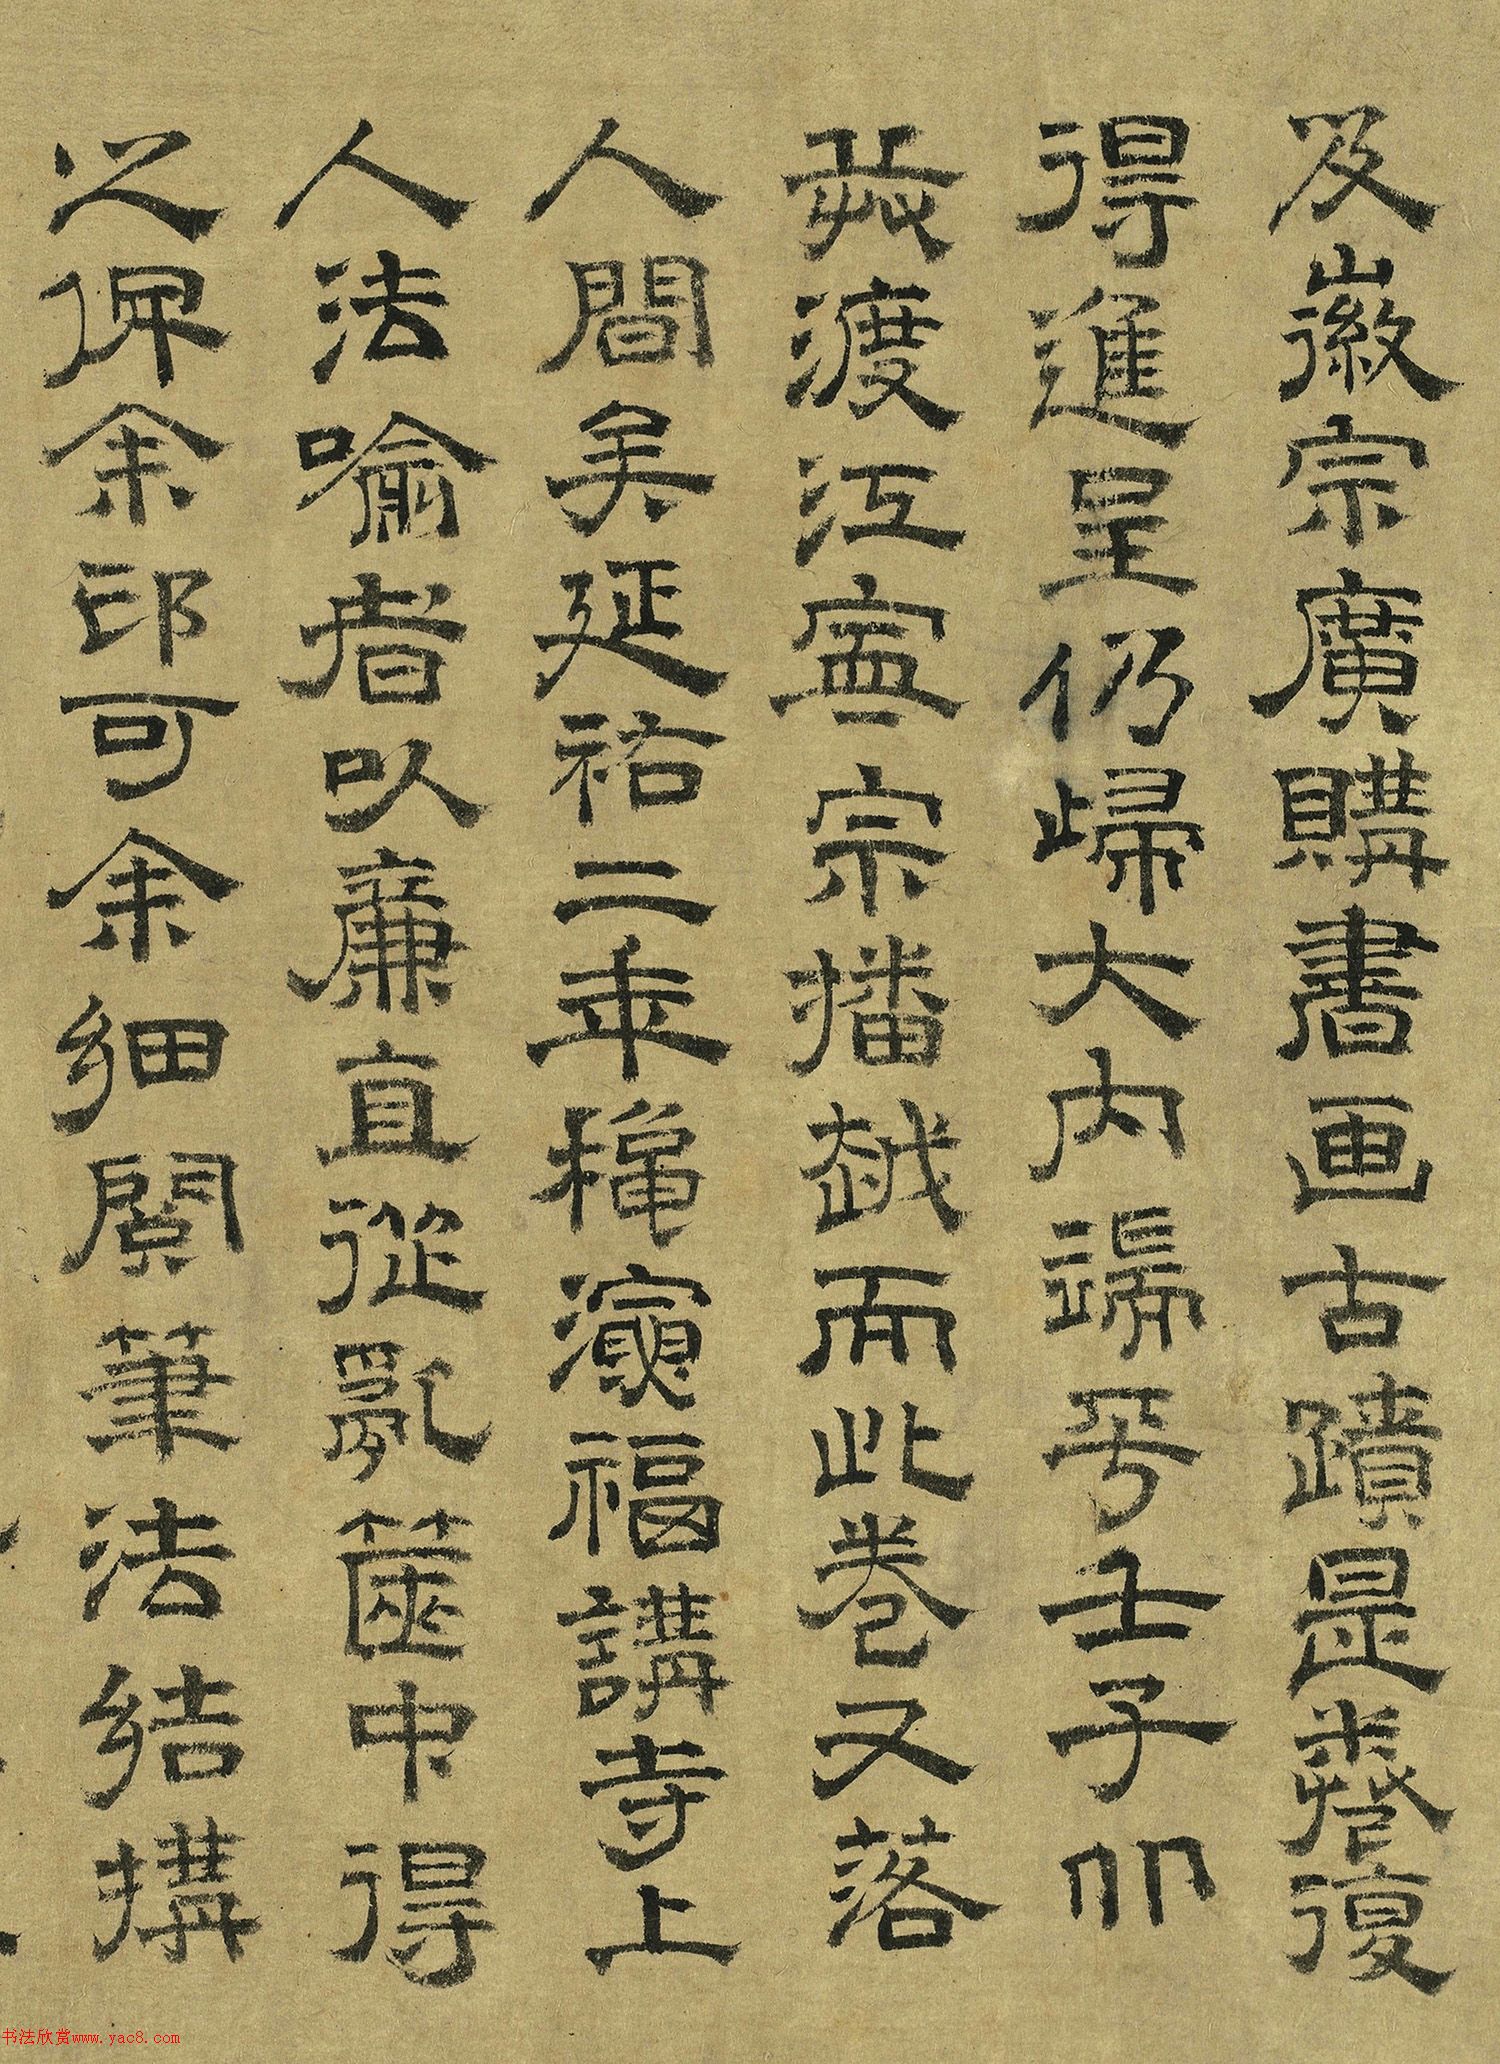 及徽宗廣購書画古蹟是卷復
得進呈仍歸大内端平壬子卯
渡江寧宗播越而此卷又落
人間矣延祐二年穐演福講寺上
人法喻者以廉直從亂篋中得
之俾余印可余細閱筆法結搆
书法欣赏www.yac8.com